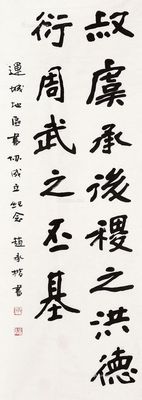 叔虞承後稷之洪德
衍周武之丕基
運城地區書協成立紀念 趙承楷書